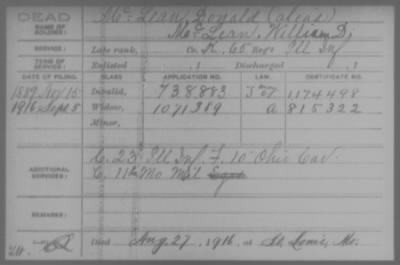 DEAD
NAME OF SOLDIER: McLean, Donald (alias)
McLean, William D.
SERVICE: Late rank, Co. K, 65 Reg't Ill Inf
TERM OF SERVICE: Enlisted , 1 Discharged , 1
DATE OF FILING. CLASS. APPLICATION NO. LAW. CERTIFICATE NO.
1889 Nov 15 Invalid, 738,883 1174498
1916 Sept 8 Widow, 1071389 a 815322
Minor,
ADDITIONAL SERVICES: C. 23 Ill Inf. F. 10 Ohio Cav.
C. 11th Mo Mil
REMARKS:
Died Aug 27, 1916, at St. Louis, Mo.